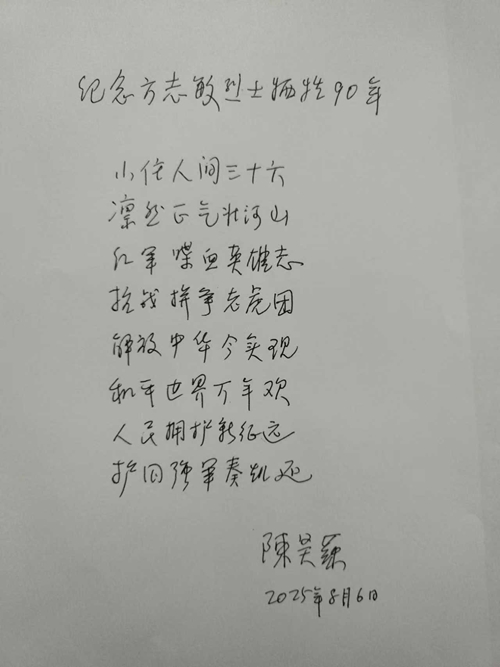 纪念方志敏烈士牺牲90年
小住人间三十六
凛然正气壮河山
红军喋血英雄志
抗战拼争老虎团
解放中华今实现
和平世界万年欢
人民拥护新征远
护国强军奏凯还
陳昊苏
2025年8月6日